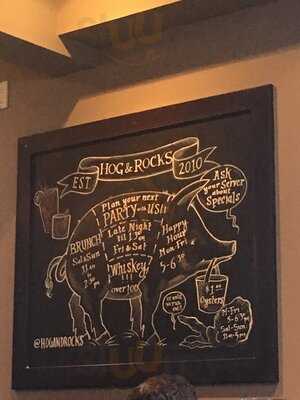 HOG & ROCKS
EST
2010
Ask
your Server
about
Specials
Plan your next
PARTY with US!
BRUNCH
Sat & Sun
11am
to
2:30pm
Late Night
til 1:30
Fri & Sat!
Happy
Hour
Mon-Fri
3-6:30
Whiskey
over Ice!
$1.00
Oysters
M-Fri
3-6:30
Sat-Sun
@HOGANDROCKS